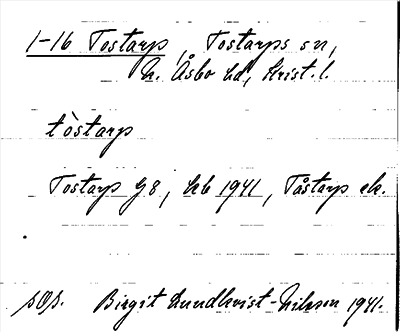 1-16 Tostarp, Tostarps sn,
N. Åsbo hd, Krist. l.
tòstarp
Tostarp G 8, kb 1941, Tåstarp ek.
sOp. Birgit Lundkvist-Nilsson 1941.